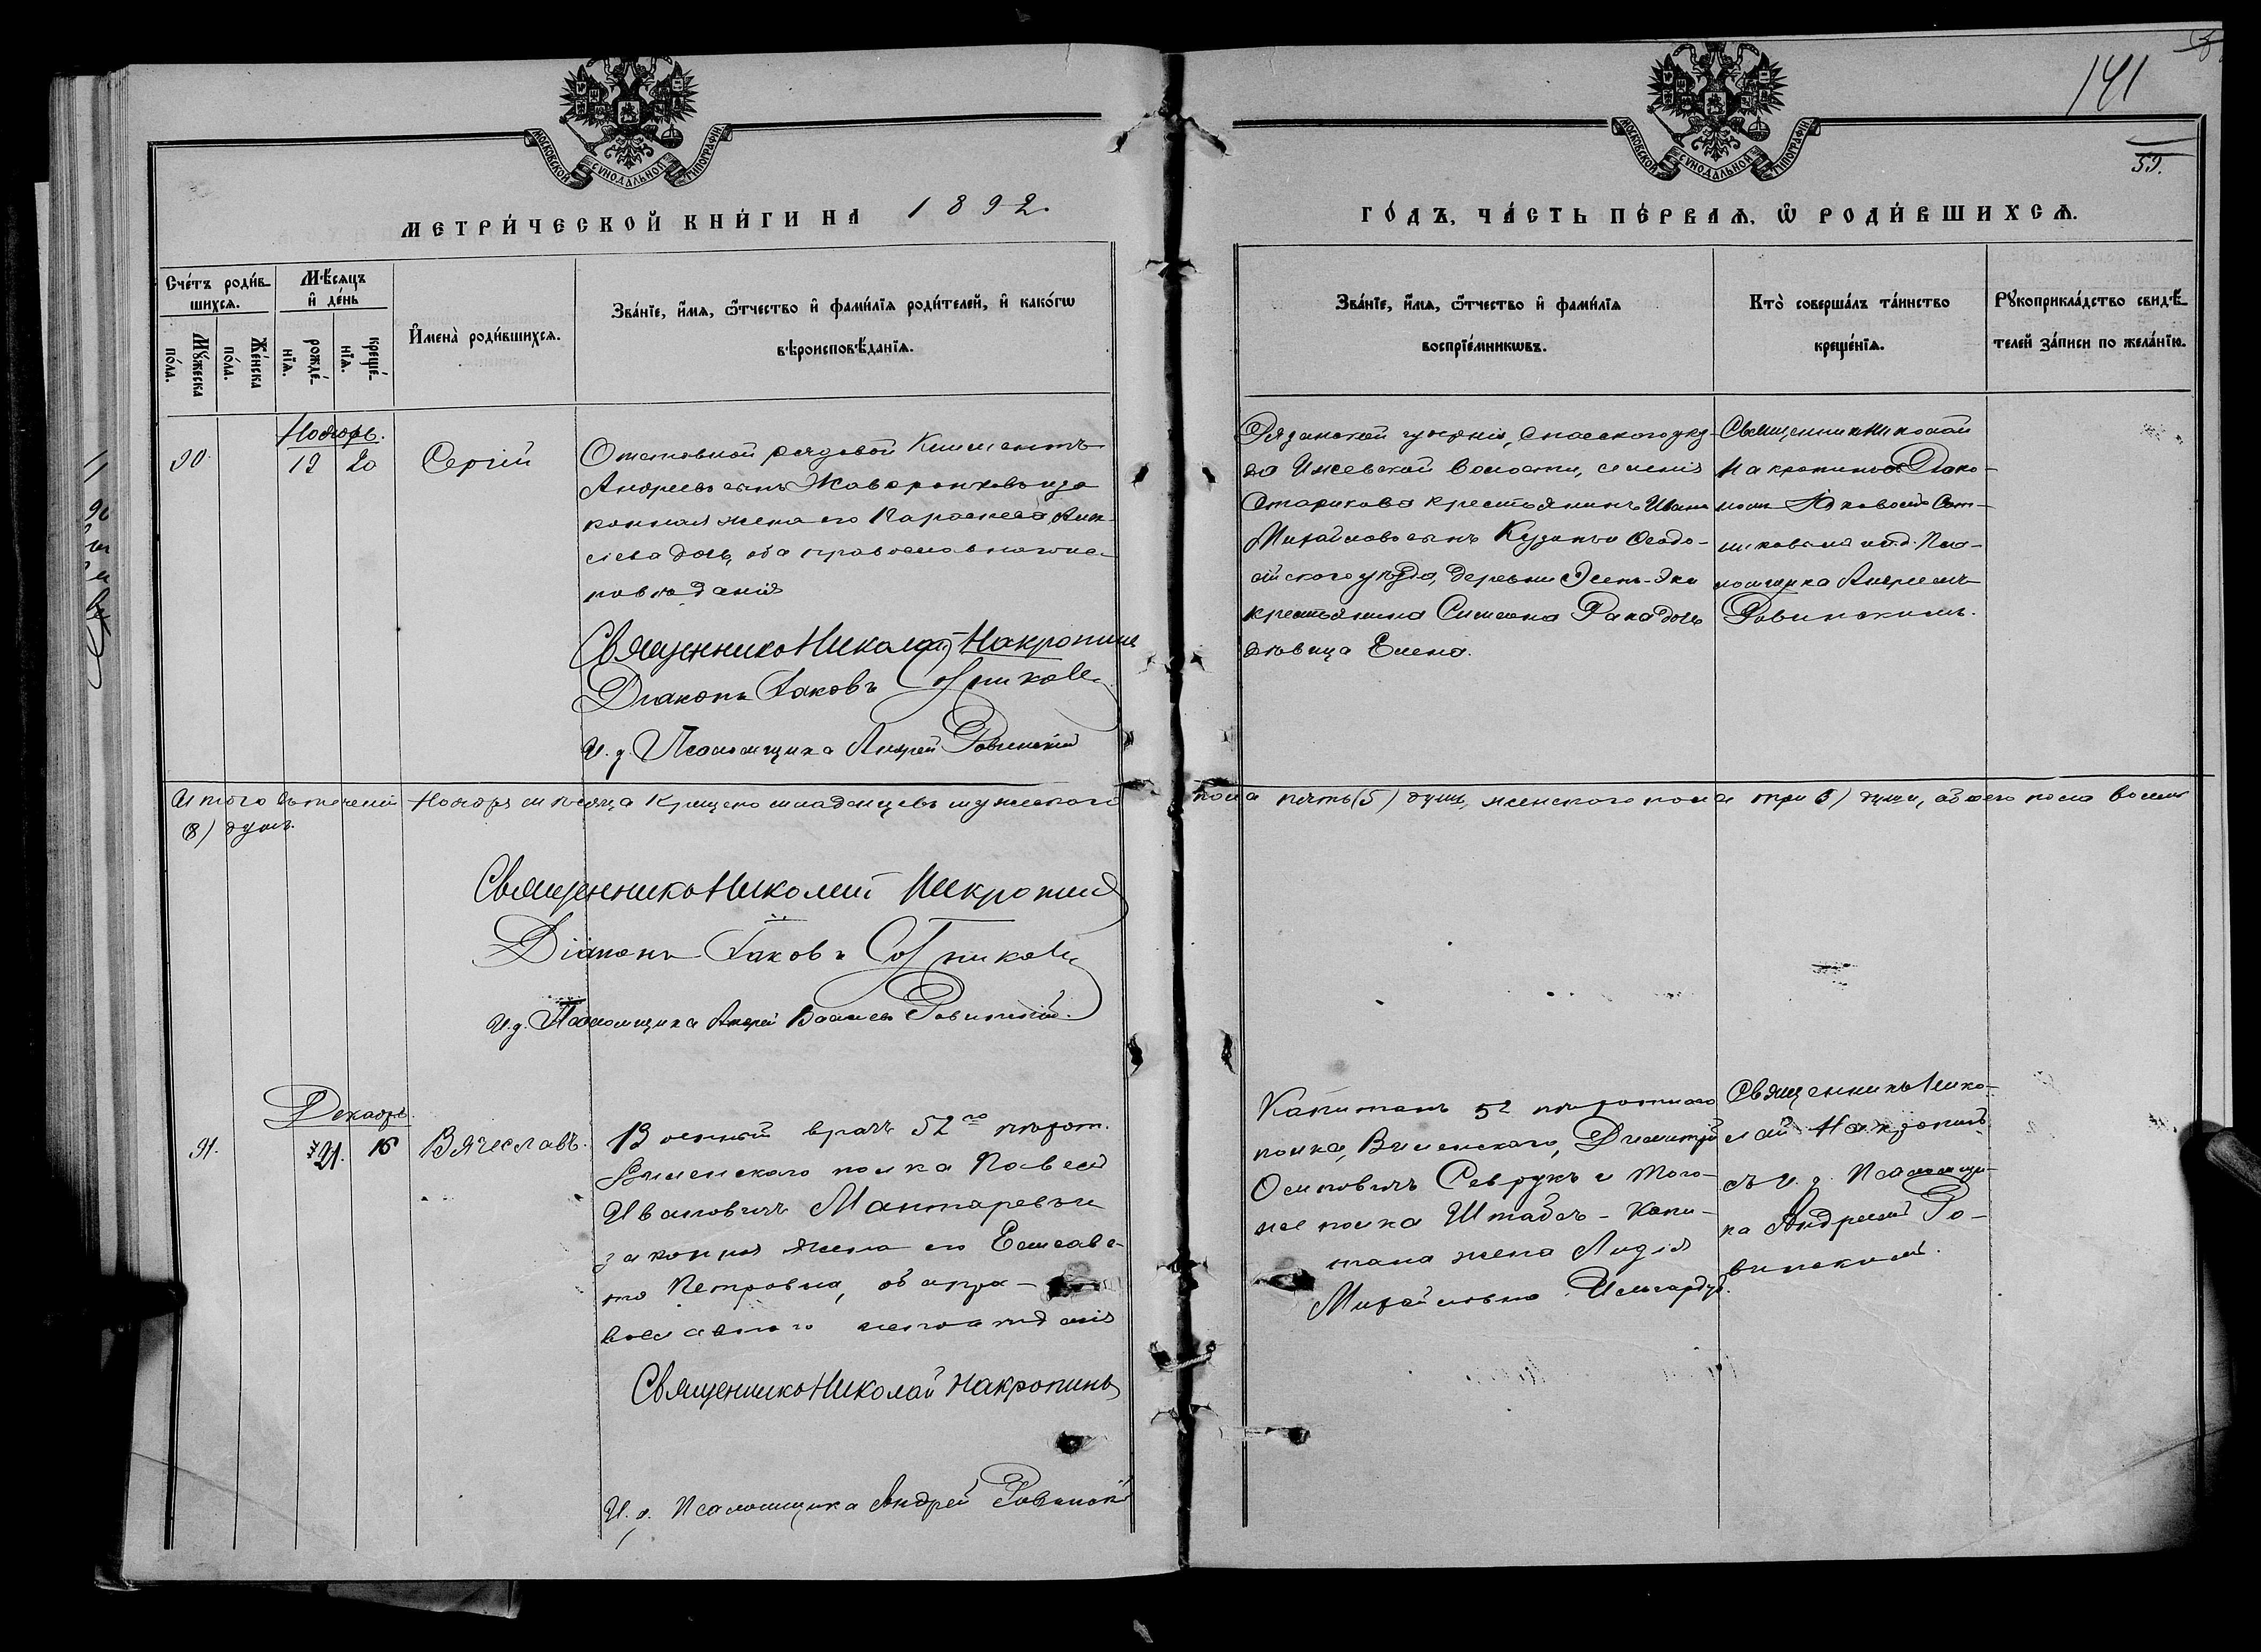 141
59.
МОСКОВСКОЙ СѴНОДАЛЬНОЙ ТИПОГРАФІИ
МОСКОВСКОЙ СѴНОДАЛЬНОЙ ТИПОГРАФІИ
МЕТРИ́ЧЕСКОЙ КНИ́ГИ НА 1892.
ГО́ДЪ, ЧА́СТЬ ПЕ́РВАѦ, Ѡ РОДИ́ВШИХСѦ.
Сче́тъ роди́в-
шихсѧ.
Мꙋ́жеска
по́ла.
Же́нска
по́ла.
Мѣ́сѧцъ
и҆ де́нь
рожде́-
нїѧ.
креще́-
нїѧ.
И҆мена̀ роди́вшихсѧ.
Зва́нїе, и҆́мѧ, ѻ҆́тчество и҆ фами́лїѧ роди́телей, и҆ како́гѡ
вѣроисповѣ́данїѧ.
Зва́нїе, и҆́мѧ, ѻ҆́тчество и҆ фами́лїѧ
воспрїе́мникѡвъ.
Кто̀ соверша́лъ та́инство
креще́нїѧ.
Рꙋкоприкла́дство свидѣ́-
телей за́писи по жела́нїю.
Ноябрь.
90. 19 20 Сергій
Отставной рядовой Климентъ
Андреевъ сынъ Жаворонковъ и за
конная жена его Параскева
дочь, оба православнаго ис-
повѣданія
Священникъ Николай Накропинъ
Діаконъ Іаковъ Сотниковъ
И. д. Псаломщика Андрей Ровинскій
Рязанской губерніи, Спасскаго уѣз-
да Ижевской волости, селенія
Старикова крестьянинъ Иванъ
Михайловъ сынъ и Ѳеодо-
сійскаго уѣзда, деревни
крестьянина Симеона дочь
дѣвица Елена.
Священникъ Николай
Накропинъ съ Діако-
номъ Іаковомъ Сот-
никовымъ и и. д. Пса-
ломщика Андреемъ
Ровинскимъ.
Итого въ теченіи Ноября мѣсяца крещено младенцевъ мужескаго пола пять (5) душъ, женскаго пола три (3) души, обоего пола восемь
(8) душъ.
Священникъ Николай Накропинъ
Діаконъ Іаковъ Сотниковъ
И. д. Псаломщика Андрей Ровинскій.
Декабрь.
91. 21. 15 Вячеславъ.
Военный врачъ 52го пѣхот.
Виленскаго полка Павелъ
Ивановичъ и
законная жена его Елисаве-
та Петровна, оба пра-
вославнаго исповѣданія
Священникъ Николай Накропинъ
И. д. Псаломщика Андрей Ровинскій
Капитанъ 52 пѣхотнаго
полка, Виленскаго, Димитрій
Осиповичъ Севрукъ и того-
же полка Штабсъ-Капи-
тана жена Лидія
Михайловна
Священникъ Нико-
лай Накропинъ
съ и. д. Псаломщи-
ка Андреемъ Ро-
винскимъ.